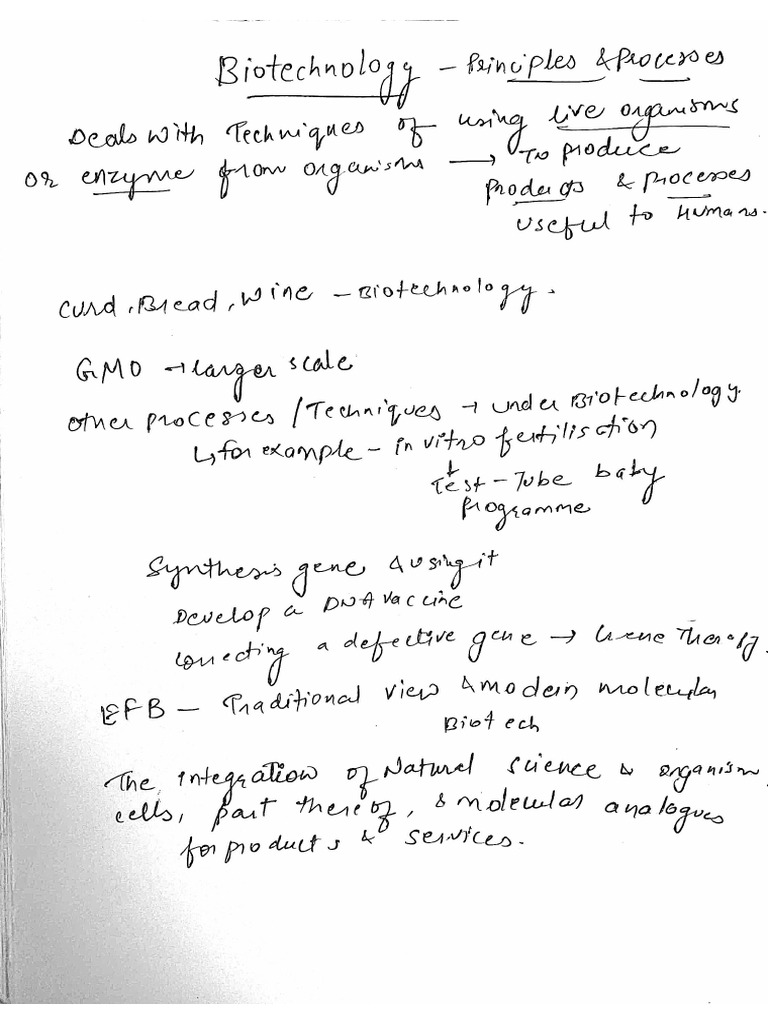 Biotechnology – Principles & Processes
Deals with Techniques of using live organisms
or enzyme from organisms → To produce
products & processes
useful to Humans.
Curd, Bread, Wine – Biotechnology.
GMO → larger scale
other processes / Techniques → under Biotechnology.
↳ for example – in vitro fertilisction
↓
Test – Tube baby
Programme
Synthesis gene & using it
Develop a DNA vaccine
correcting a defective gene → Gene Therapy.
EFB – Traditional view & modern molecular
Biotech
The integration of Natural science & organism,
cells, part thereof, & molecular analogues
for products & services.